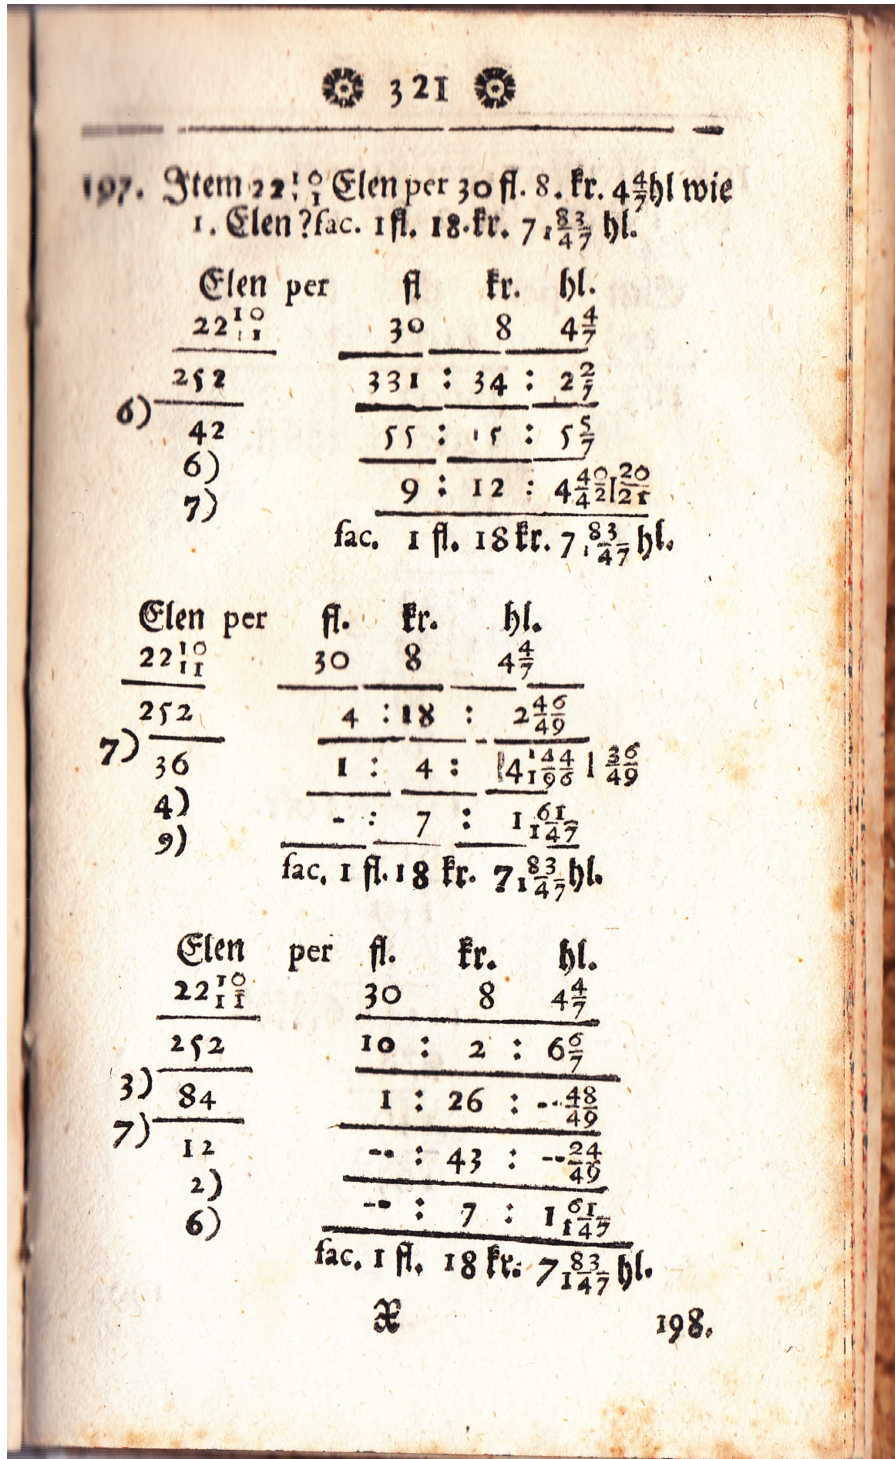 321
197. Item 22 10/11 Elen per 30 fl. 8. kr. 4 4/7 hl wie
1. Elen? fac. 1 fl. 18. kr. 7 83/147 hl.
Elen per fl kr. hl.
22 10/11 30 8 4 4/7
252 331 : 34 : 2 2/7
6) 42 55 : 15 : 5 5/7
6) 9 : 12 : 4 40/42 | 20/21
7)
fac. 1 fl. 18 kr. 7 83/147 hl.
Elen per fl. kr. hl.
22 10/11 30 8 4 4/7
252 4 : 18 : 2 46/49
7) 36 1 : 4 : 4 144/196 | 36/49
4) - : 7 : 1 61/147
9)
fac. 1 fl. 18 kr. 7 83/147 hl.
Elen per fl. kr. hl.
22 10/11 30 8 4 4/7
252 10 : 2 : 6 6/7
3) 84 1 : 26 : -- 48/49
7) 12 -- : 43 : -- 24/49
2) -- : 7 : 1 61/147
6)
fac. 1 fl. 18 kr. 7 83/147 hl.
X 198.